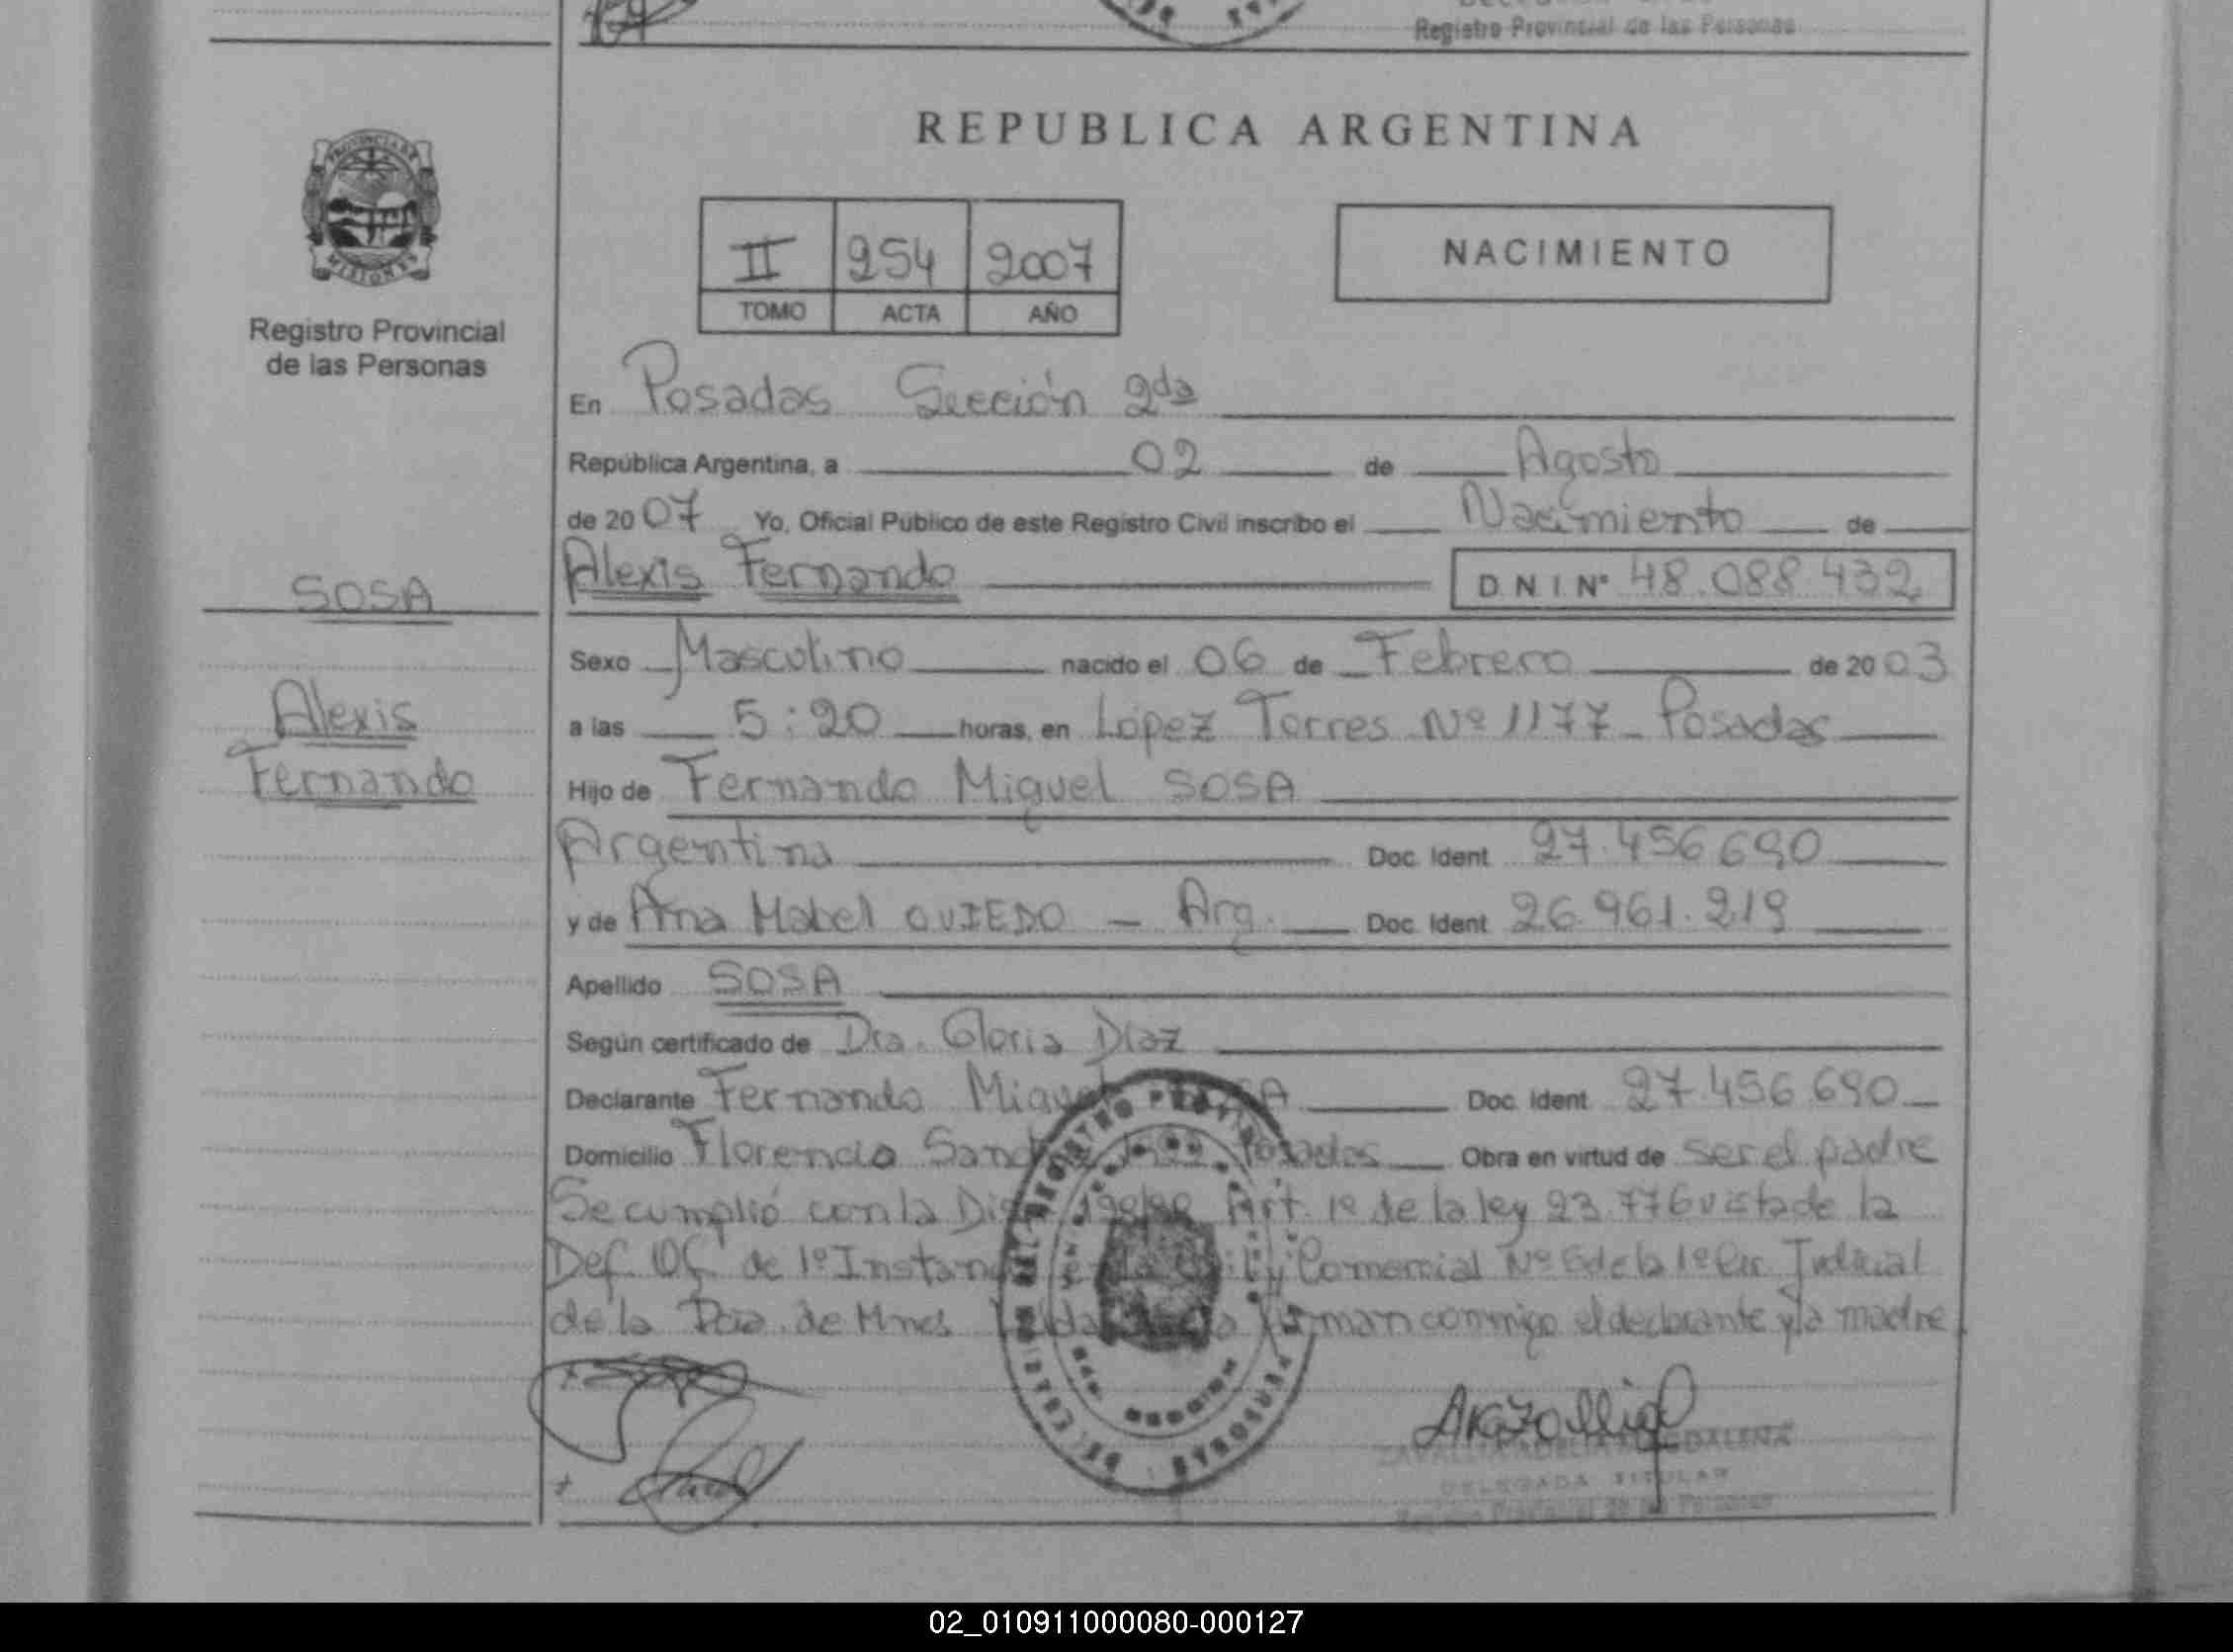 Registro Provincial de las Personas
PROVINCIA DE
MISIONES
Registro Provincial
de las Personas
SOSA
Alexis
Fernando
REPUBLICA ARGENTINA
II 254 2007
TOMO ACTA AÑO
NACIMIENTO
En Posadas Sección 2da
República Argentina, a 02 de Agosto
de 2007 Yo, Oficial Público de este Registro Civil inscribo el Nacimiento de
Alexis Fernando D N I Nº 48.088.432
Sexo Masculino nacido el 06 de Febrero de 2003
a las 5:20 horas, en López Torres Nº 1177 - Posadas
Hijo de Fernando Miguel SOSA
Argentina Doc. Ident 27.456.690
y de Ana Mabel OVIEDO - Arg. Doc. Ident 26.961.219
Apellido SOSA
Según certificado de Dra. Gloria Díaz
Declarante Fernando Miguel Doc. Ident 27.456.690
Domicilio Florencio Posadas Obra en virtud de ser el padre
Se cumplió con la Art. 1º de la ley 23.776 vista de la
Def. Of. de 1º Comercial Nº de la 1º Cir. Judicial
de la Pcia. de Mnes firman conmigo el declarante y la madre
DELEGADA TITULAR
Registro Provincial de las Personas
02_010911000080-000127